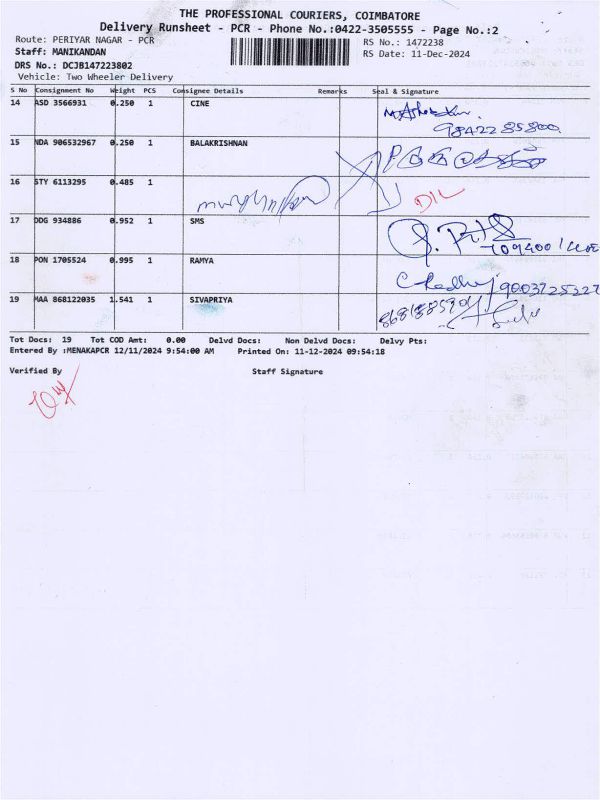 THE PROFESSIONAL COURIERS, COIMBATORE
Delivery Runsheet - PCR - Phone No.:0422-3505555 - Page No.:2
Route: PERIYAR NAGAR - PCR
RS No.: 1472238
Staff: MANIKANDAN
RS Date: 11-Dec-2024
DRS No.: DCJB147223802
Vehicle: Two Wheeler Delivery
S No Consignment No Weight PCS Consignee Details Remarks Seal & Signature
14 ASD 3566931 0.250 1 CINE
9842285800
15 NDA 906532967 0.250 1 BALAKRISHNAN
16 STY 6113295 0.485 1
D/L
17 DDG 934886 0.952 1 SMS
18 PON 1705524 0.995 1 RAMYA
9003725327
19 MAA 868122035 1.541 1 SIVAPRIYA
Tot Docs: 19 Tot COD Amt: 0.00 Delvd Docs: Non Delvd Docs: Delvy Pts:
Entered By :MENAKAPCR 12/11/2024 9:54:00 AM Printed On: 11-12-2024 09:54:18
Verified By Staff Signature